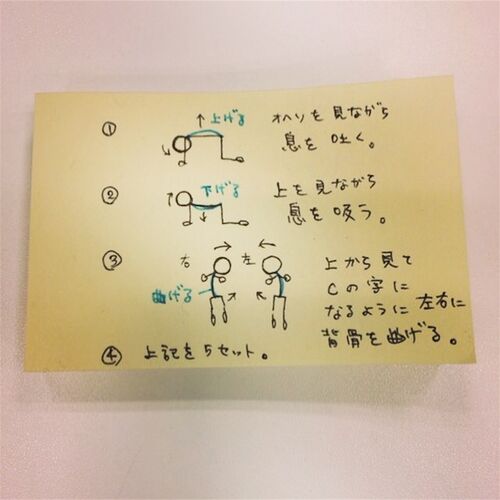 ① ↑上げる オヘソを見ながら
息を吐く。
② 下げる 上を見ながら
息を吸う。
③ 右 左 上から見て
曲げる Cの字に
なるように左右に
背骨を曲げる。
④ 上記を5セット。